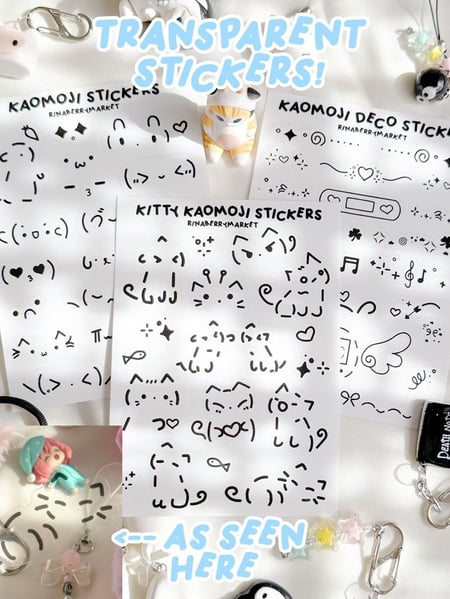 TRANSPARENT
STICKERS!
KAOMOJI STICKERS
RINABERRYMARKET
KAOMOJI DECO STICKE
RINABERRYMARKET
KITTY KAOMOJI STICKERS
RINABERRYMARKET
DEATH NOTE
<-- AS SEEN
HERE